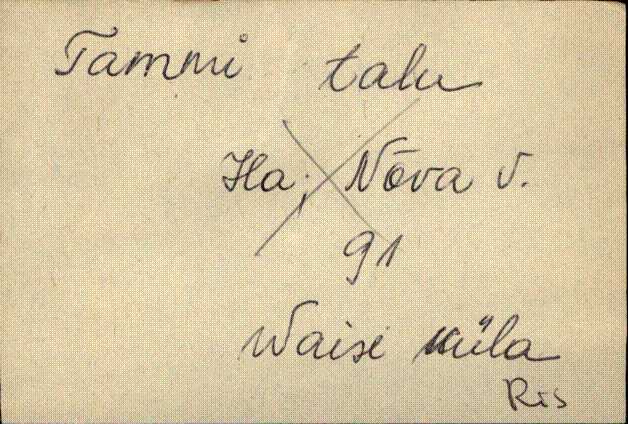 Tammi talu
Ha; Nõva v.
91
Waise küla
Ris